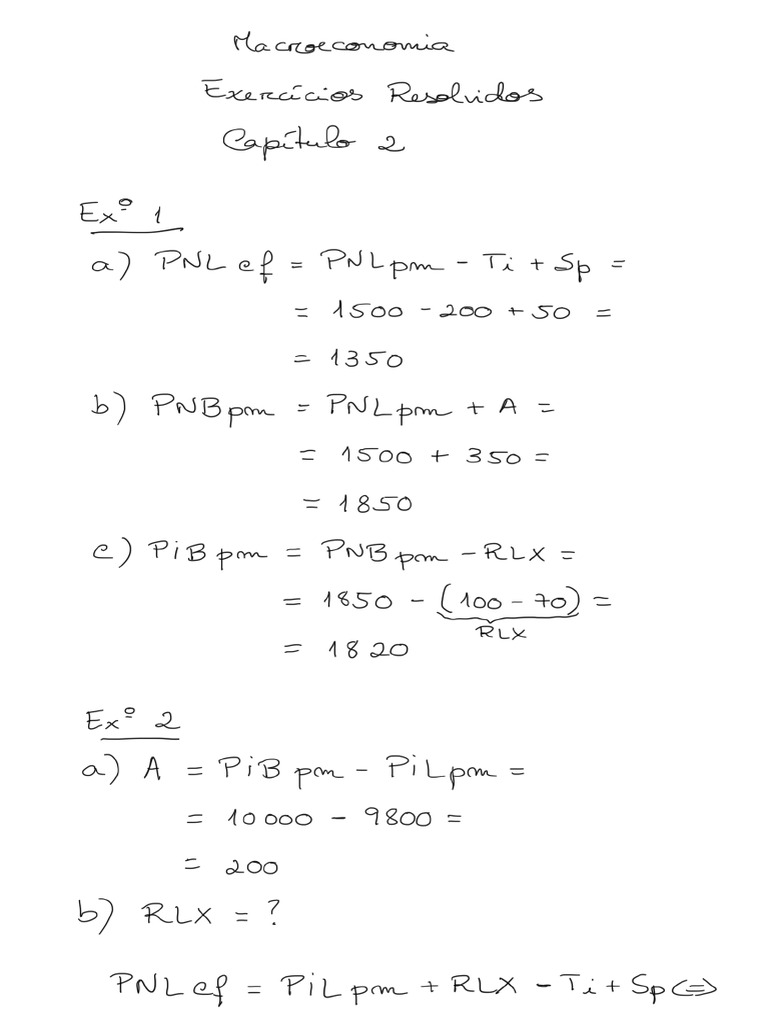 Macroeconomia
Exercícios Resolvidos
Capítulo 2
Exº 1
a) PNL cf = PNLpm - Ti + Sp =
= 1500 - 200 + 50 =
= 1350
b) PNBpm = PNLpm + A =
= 1500 + 350 =
= 1850
c) PiBpm = PNBpm - RLX =
= 1850 - (100 - 70) =
RLX
= 1820
Exº 2
a) A = PiBpm - PiLpm =
= 10000 - 9800 =
= 200
b) RLX = ?
PNLcf = PiLpm + RLX - Ti + Sp <=>